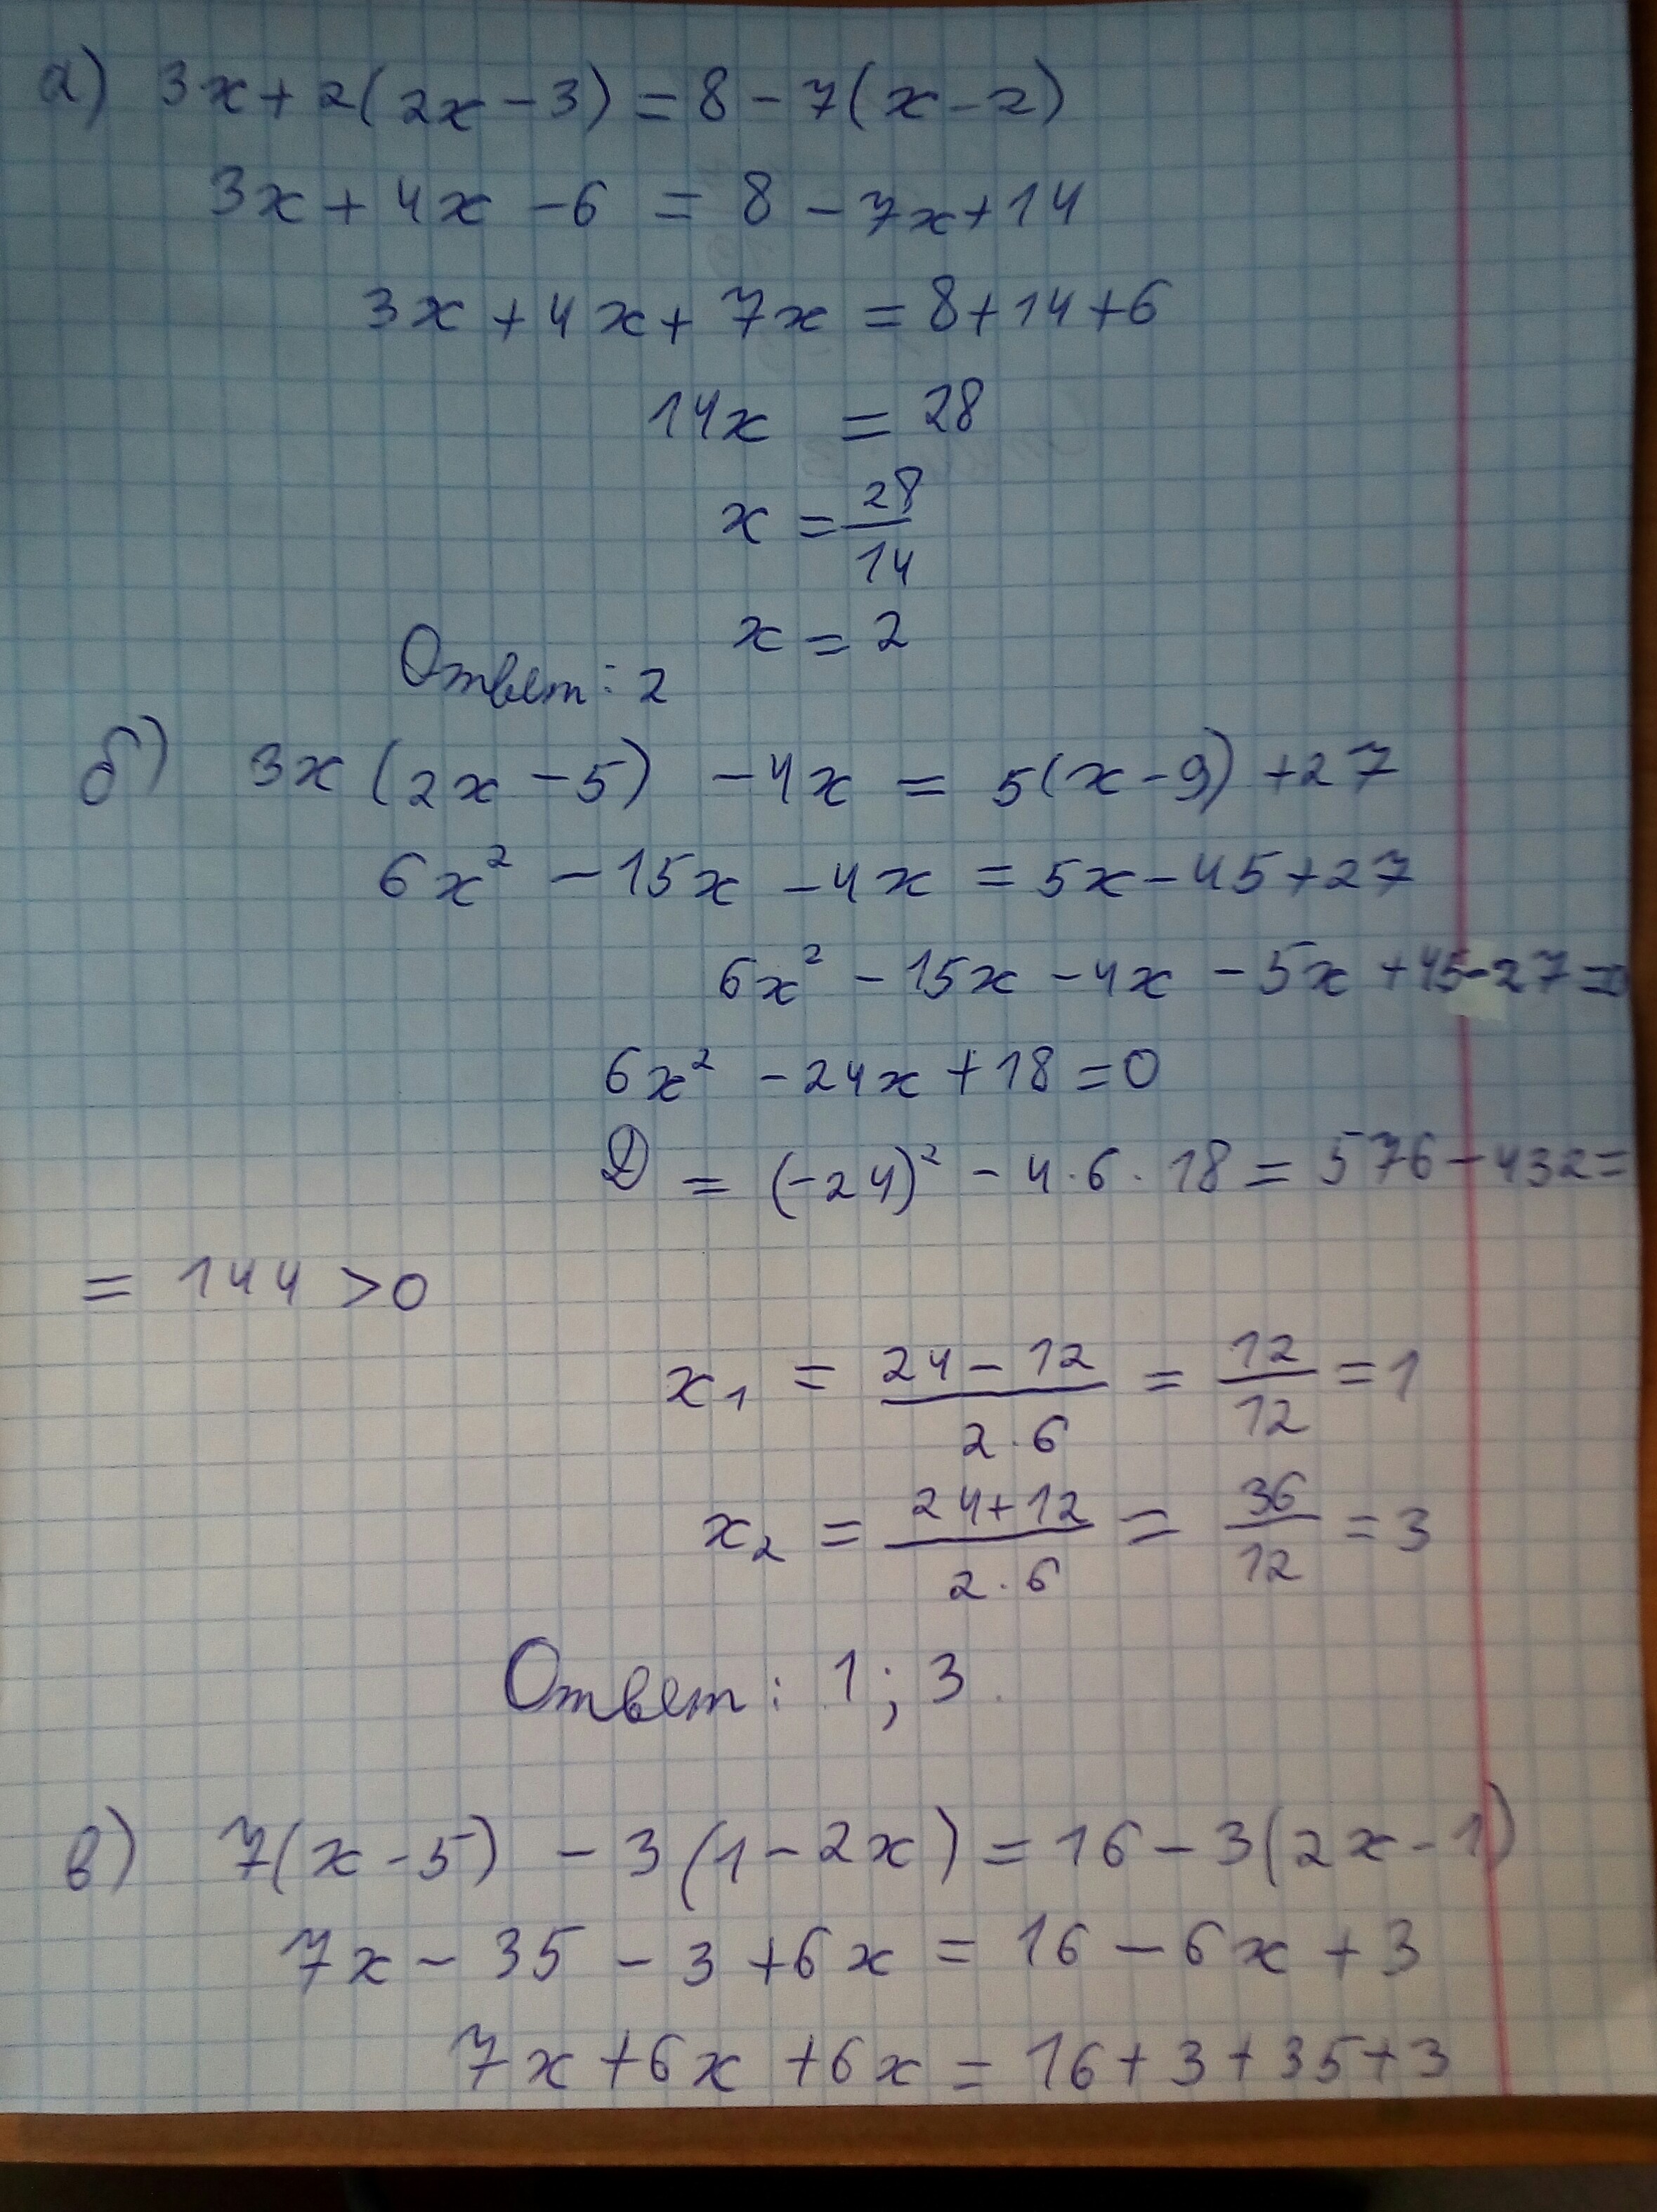 а) 3x + 2(2x - 3) = 8 - 7(x - 2)
3x + 4x - 6 = 8 - 7x + 14
3x + 4x + 7x = 8 + 14 + 6
14x = 28
x = 28/14
x = 2
Ответ: 2
б) 3x(2x - 5) - 4x = 5(x - 9) + 27
6x² - 15x - 4x = 5x - 45 + 27
6x² - 15x - 4x - 5x + 45 - 27 = 0
6x² - 24x + 18 = 0
D = (-24)² - 4·6·18 = 576 - 432 =
= 144 > 0
x₁ = (24 - 12)/(2·6) = 12/12 = 1
x₂ = (24 + 12)/(2·6) = 36/12 = 3
Ответ: 1; 3.
в) 7(x - 5) - 3(1 - 2x) = 16 - 3(2x - 1)
7x - 35 - 3 + 6x = 16 - 6x + 3
7x + 6x + 6x = 16 + 3 + 35 + 3